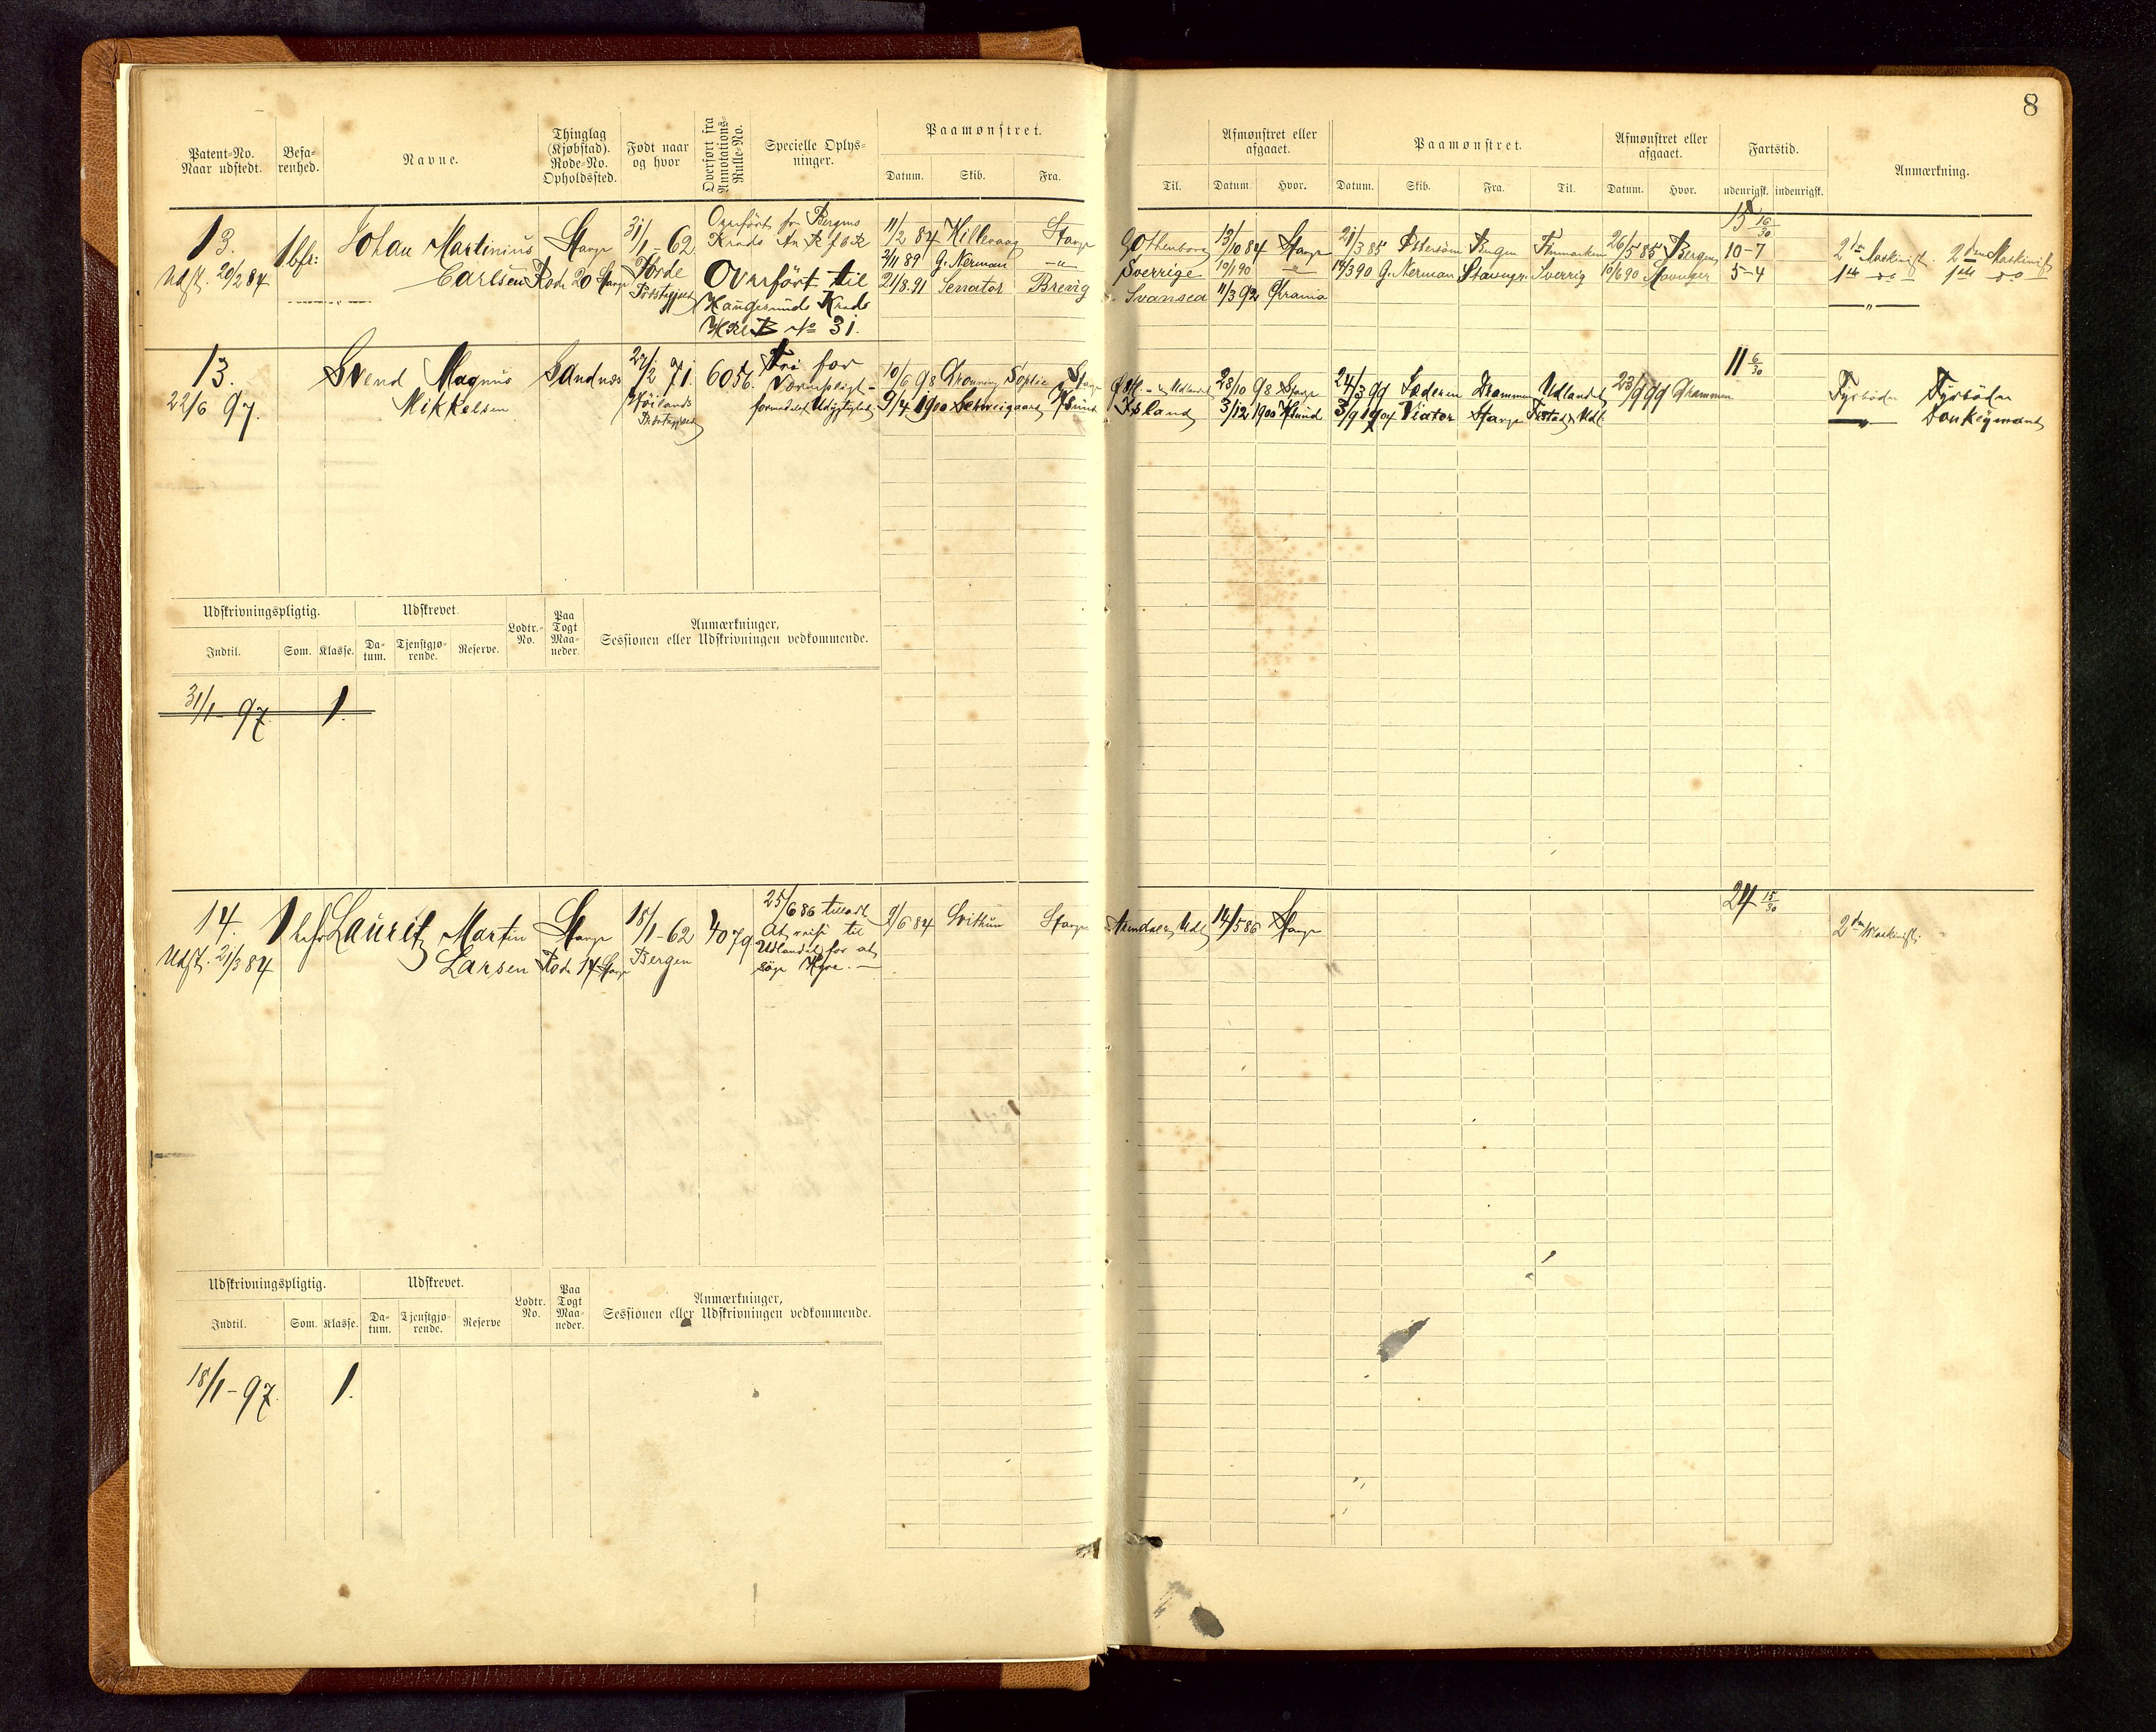 8
Patent-No. Naar udstedt.
Befa-renhed.
Navne.
Thinglag (Kjøbstad). Rode-No. Opholdssted.
Født naar og hvor
Overført fra Annotations-Rulle-No.
Specielle Oplys-ninger.
Paamønstret.
Datum. Skib. Fra. Til.
Afmønstret eller afgaaet.
Datum. Hvor.
Paamønstret.
Datum. Skib. Fra. Til.
Afmønstret eller afgaaet.
Datum. Hvor.
Fartstid.
udenrigsk. indenrigsk.
Anmærkning.
13.
Udst. 20/2 84
1 bfr:
Johan Martinius
Carlsen
Stavgr
Rode 20 Stavgr
31/1 - 62
Førde
Overført fr Bergens
Overført til
Haugesunds Krds
No 31.
11/2 84 Killevaag Stavgr Gothenborg 13/10 84 Stavgr 21/3 85 Bergen Finmarken 26/5 85 Bergen 10-7
2/11 89 G. Nerman -"- Sverrige 19/1 90 -"- 14/3 90 G. Nerman Stavngr Sverrig 10/6 90 Stavanger 5-4
21/8.91 Senator Brevig Svansea 11/3 92
15 16/30
2den Maskinist. 2den Maskinist
1ste do 1ste do
-"-
13.
22/6 97.
Svend Magnus
Mikkelsen
Sandnæs
27/2 71.
Høilands
Præstegjeld
6056.
Fri for
Værnepligt -
formedelst Udygtighed
10/6 98 Dronning Sophie Stavgr Udlandet 28/10 98 Stavgr 24/3 99 Drammen Udlandet 23/9 99 Drammen
9/4 1900 Schweigaard Hsund Island 3/12 1900 Hsund 3/9 1904 Viator Stavgr
11 6/30
Fyrbøder Fyrbøder
-"- Donkeymand
Udskrivningspligtig.
Indtil. Som. Klasse.
Udskrevet.
Da-tum. Tjenstgjø-rende. Reserve.
Lodtr.-No.
Paa Togt Maa-neder.
Anmærkninger,
Sessionen eller Udskrivningen vedkommende.
31/1 - 97. 1.
14.
Udst. 21/3 84
1 befr
Lauritz Martin
Larsen
Stavgr
Rode 14 Stavgr
18/1 - 62
Bergen
4079
25/6 86 tilladt
At reise til
Udlandet for at
søge Hyre. -
9/6 84 Svithun Stavgr Udl 14/5 86 Stavgr
24 15/30
2den Maskinist.
Udskrivningspligtig.
Indtil. Som. Klasse.
Udskrevet.
Da-tum. Tjenstgjø-rende. Reserve
Lodtr. No.
Paa Togt Maa-neder.
Anmærkninger,
Sessionen eller Udskrivningen vedkommende.
18/1 - 97. 1.